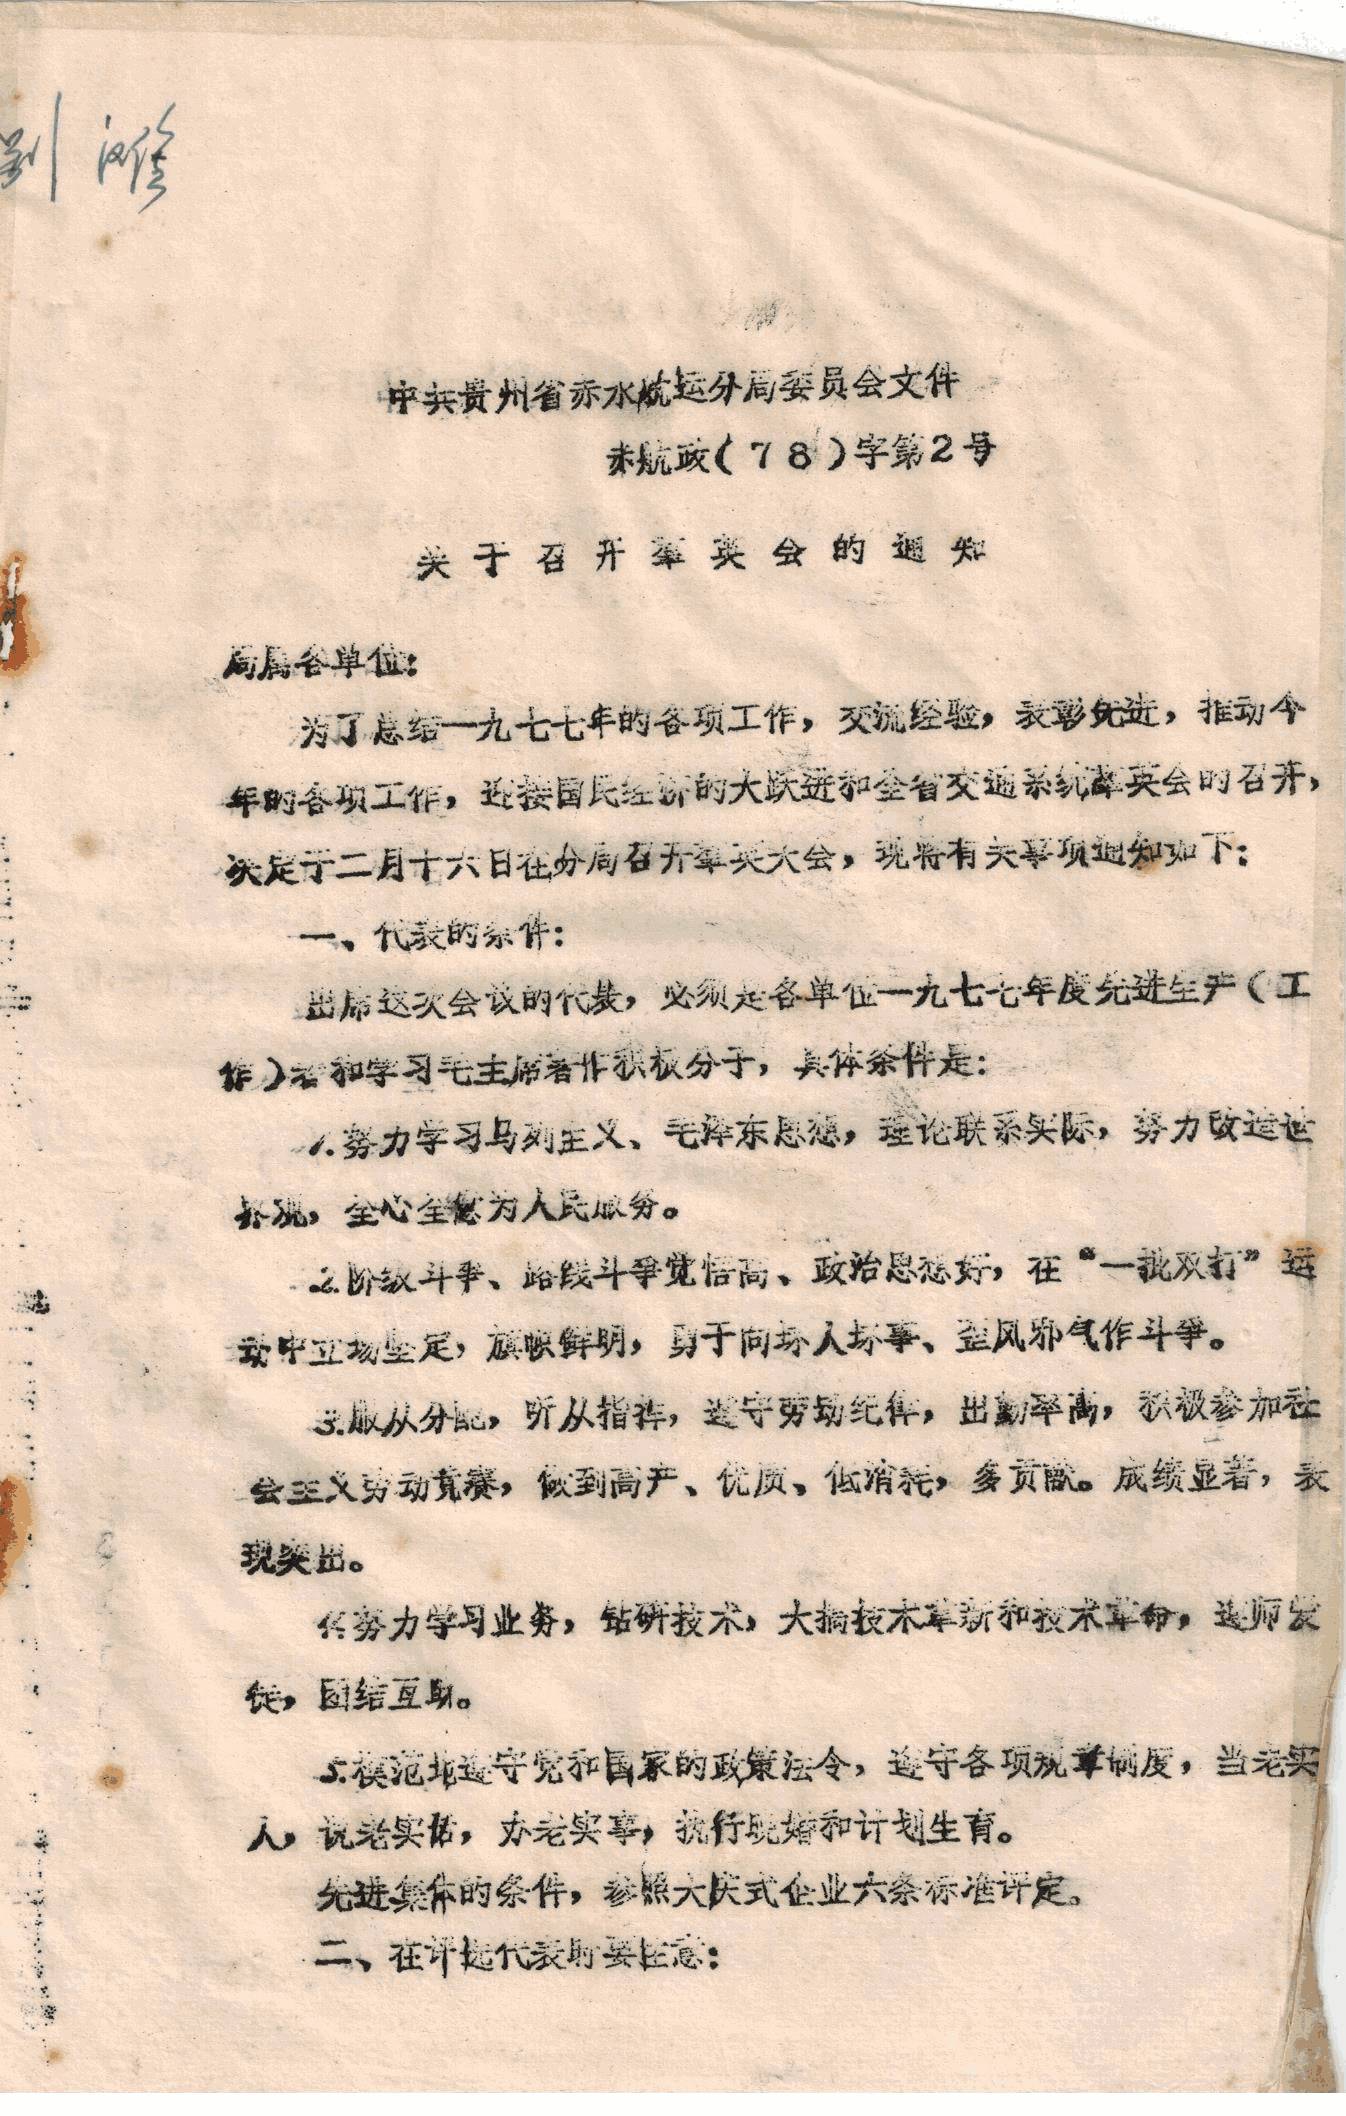 刘
中共贵州省赤水航运分局委员会文件
赤航政(78)字第2号
关于召开羣英会的通知
局属各单位:
为了总结一九七七年的各项工作，交流经验，表彰先进，推动今
年的各项工作，迎接国民经济的大跃进和全省交通系统羣英会的召开，
决定于二月十六日在分局召开羣英大会，现将有关事项通知如下:
一、代表的条件:
出席这次会议的代表，必须是各单位一九七七年度先进生产(工
作)者和学习毛主席著作积极分子，具体条件是:
1.努力学习马列主义、毛泽东思想，理论联系实际，努力改造世
界观，全心全意为人民服务。
2.阶级斗争、路线斗争觉悟高、政治思想好，在“一批双打”运
动中立场坚定，旗帜鲜明，勇于向坏人坏事、歪风邪气作斗争。
3.服从分配，听从指挥，遵守劳动纪律，出勤率高，积极参加社
会主义劳动竟赛，做到高产、优质、低消耗，多贡献。成绩显著，表
现突出。
4.努力学习业务，钻研技术，大搞技术革新和技术革命，遵师爱
徒，团结互助。
5.模范地遵守党和国家的政策法令，遵守各项规章制度，当老实
人，说老实话，办老实事，执行晚婚和计划生育。
先进集体的条件，参照大庆式企业六条标准评定。
二、在评选代表时要注意: